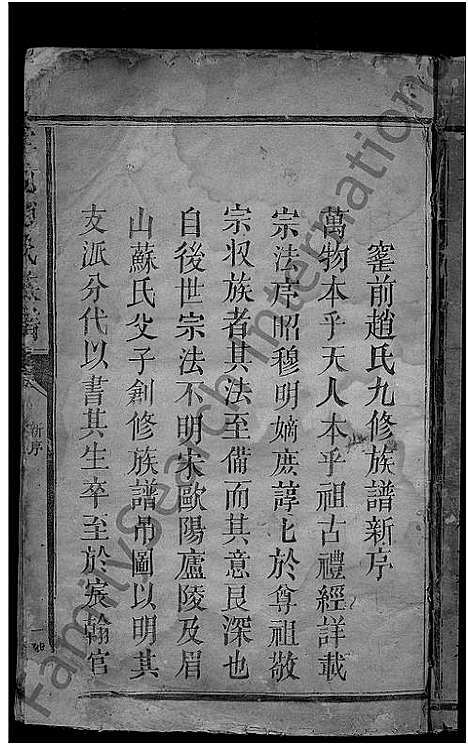 窰前趙氏九修族譜新序
萬物本乎天人本乎祖古禮經詳載
宗法序昭穆明嫡庶諄七於尊祖敬
宗收族者其法至備而其意良深也
自後世宗法不明宋歐陽廬陵及眉
山蘇氏父子創修族譜吊圖以明其
支派分代以書其生卒至於宸翰官
新序
一
FamilySearch International